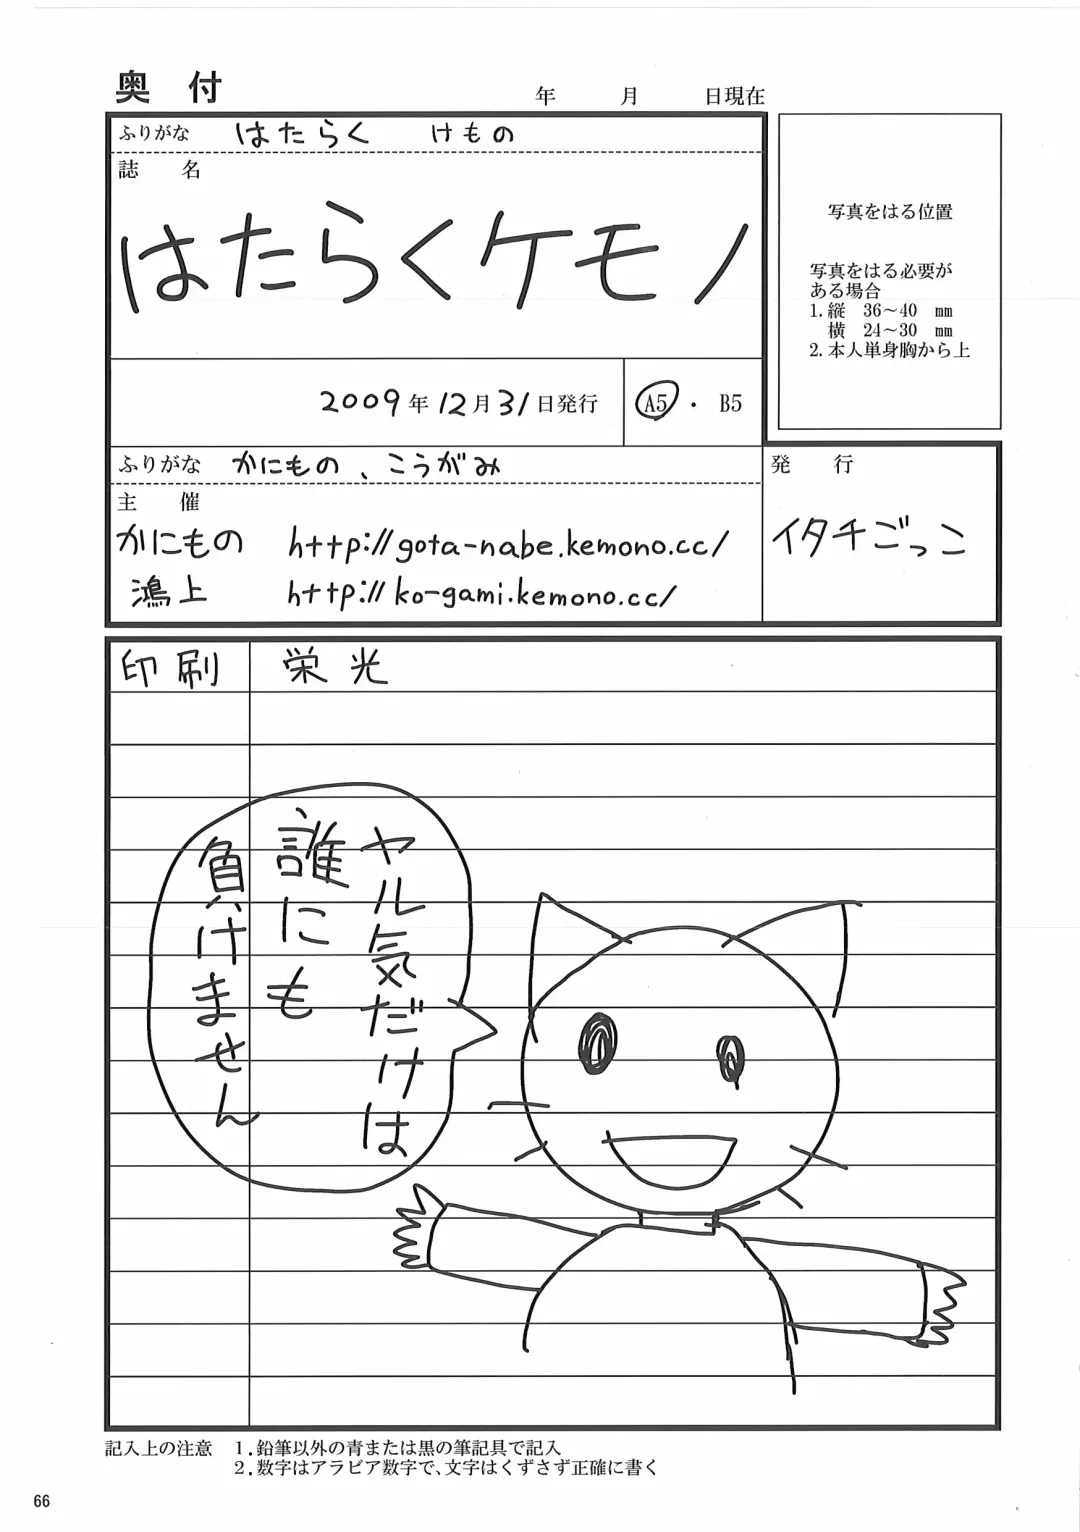 奥 付
年 月 日現在
ふりがな はたらく けもの
誌 名
はたらくケモノ
2009年12月31日発行 A5 ・ B5
写真をはる位置
写真をはる必要が
ある場合
1.縦 36～40 mm
横 24～30 mm
2.本人単身胸から上
ふりがな かにもの、こうがみ
主 催
かにもの http://gota-nabe.kemono.cc/
鴻上 http://ko-gami.kemono.cc/
発 行
イタチごっこ
印刷 栄光
ヤル気だけは
誰にも
負けません
記入上の注意 1.鉛筆以外の青または黒の筆記具で記入
2.数字はアラビア数字で、文字はくずさず正確に書く
66